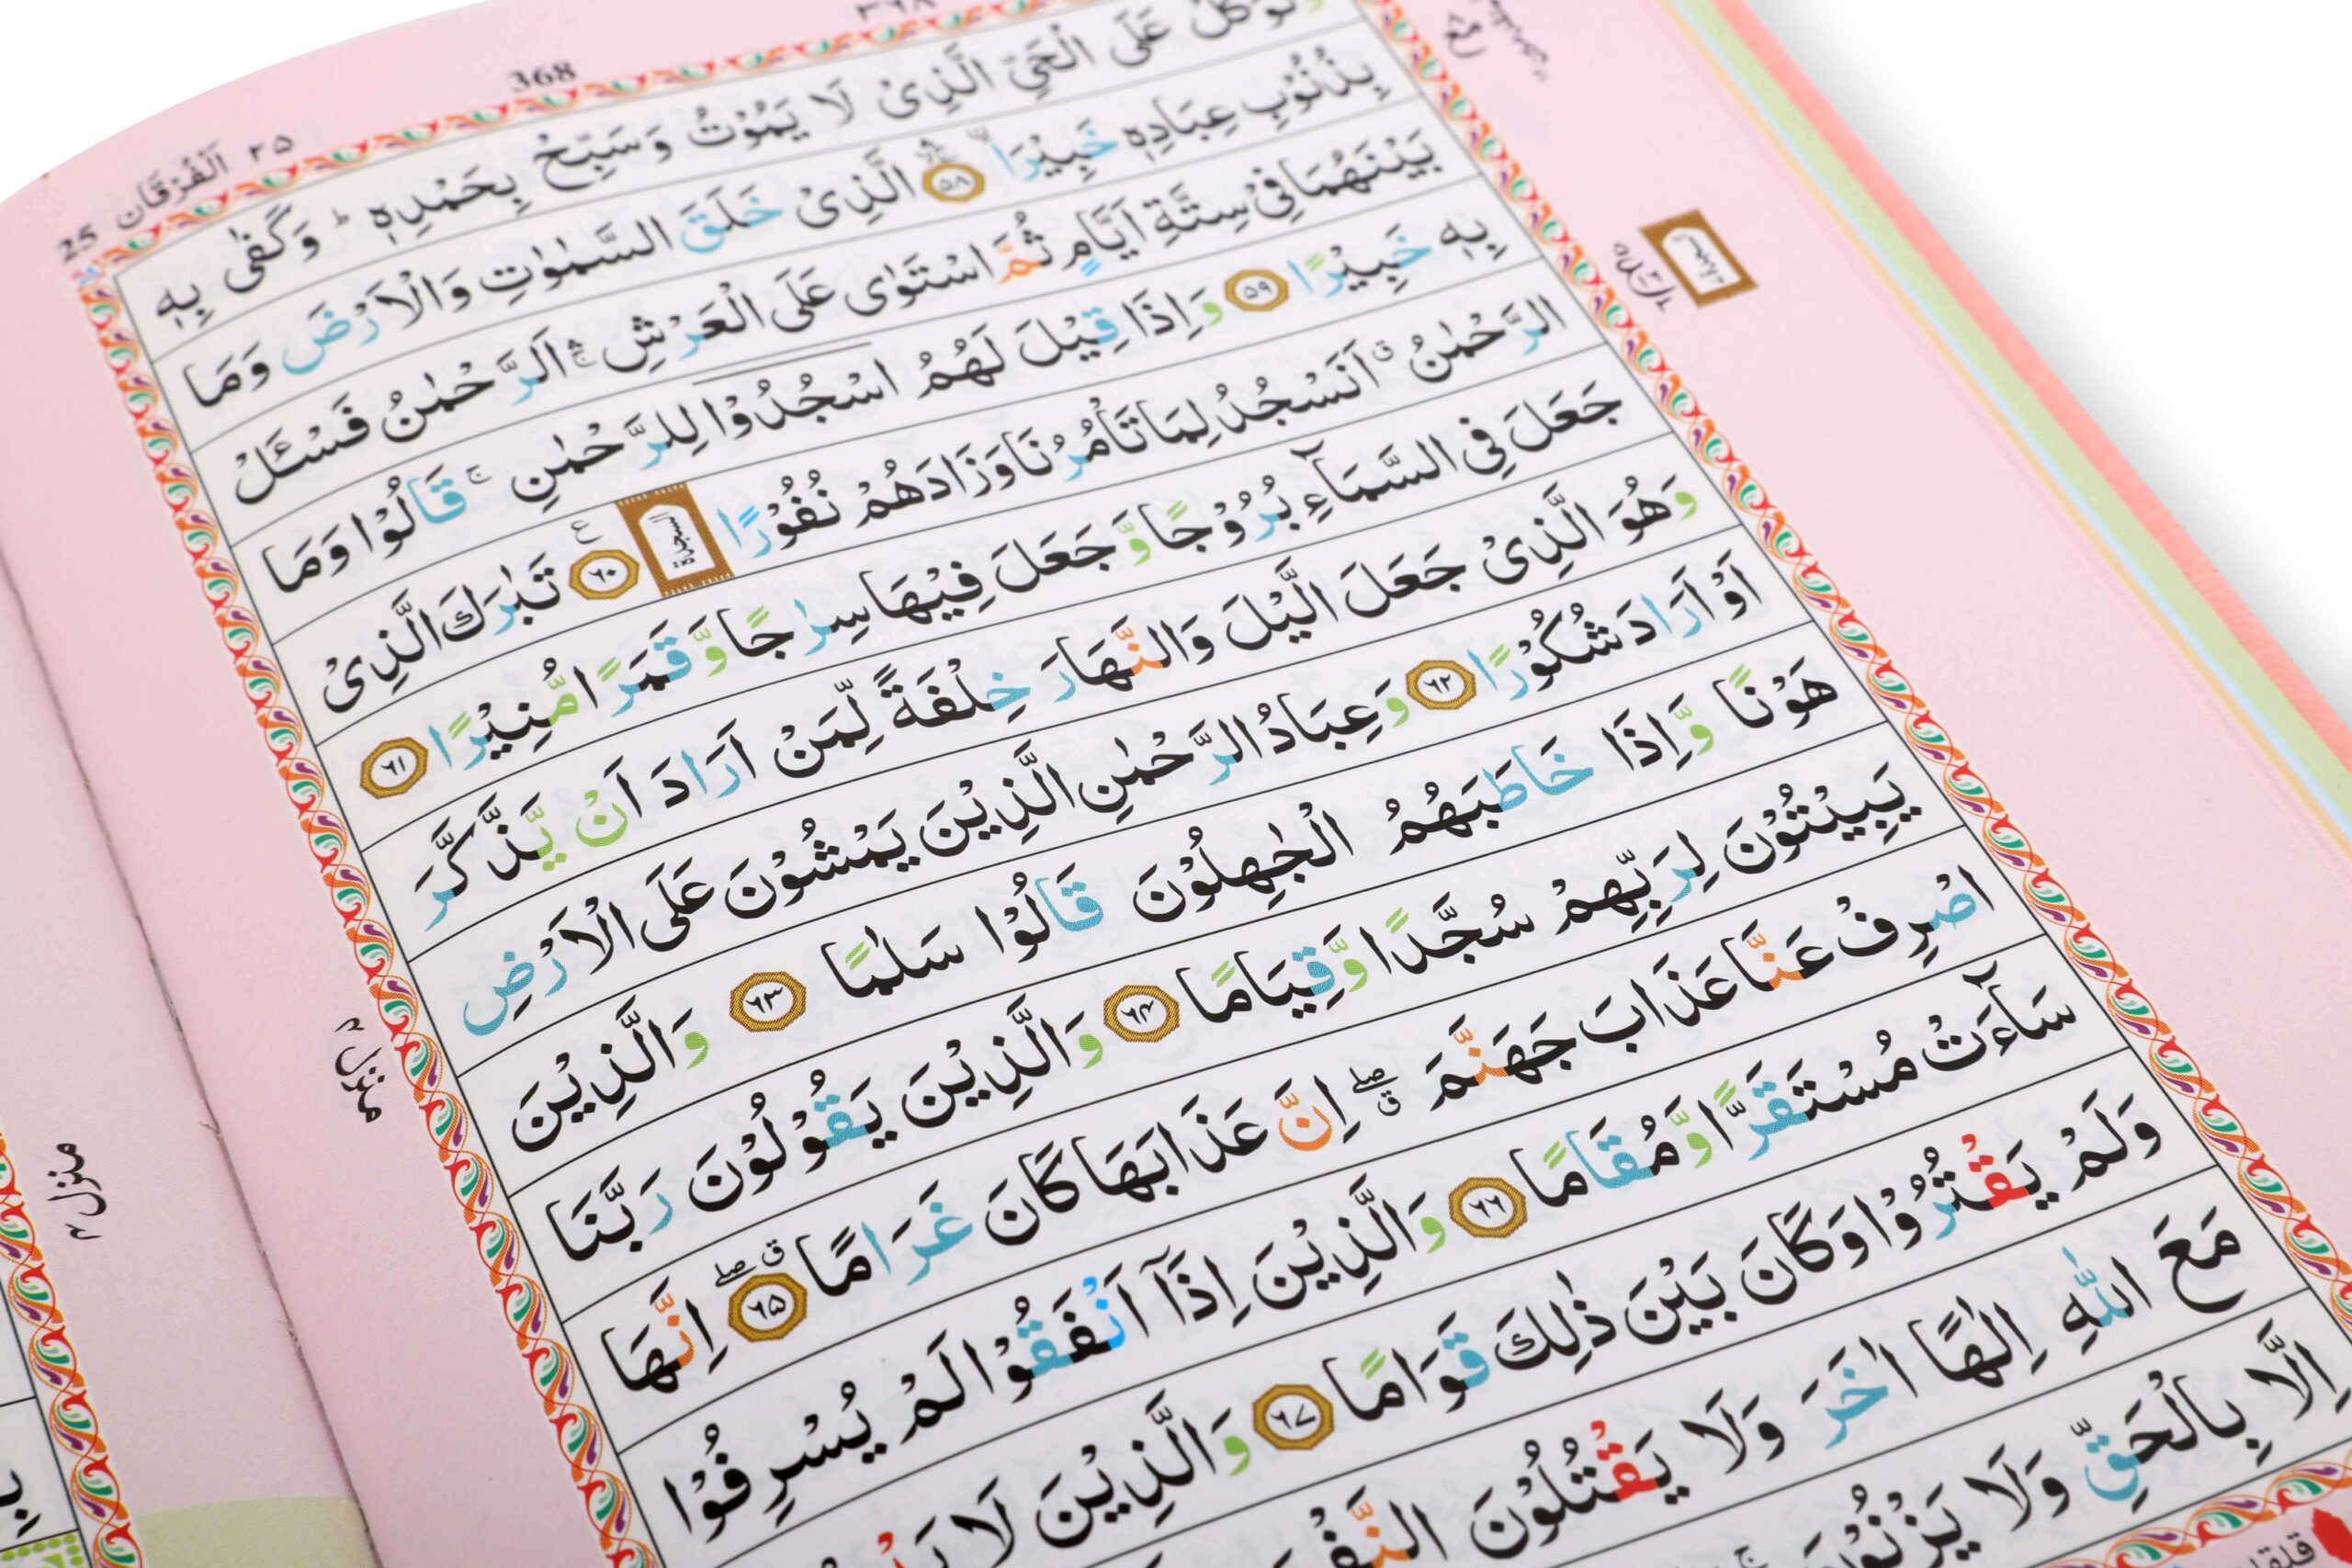 ٣٦٨
368
اَلْفُرْقَان ٢٥
25
وَتَوَكَّلْ عَلَى الْحَيِّ الَّذِىْ لَا يَمُوْتُ وَسَبِّحْ بِحَمْدِهٖ ؕ وَكَفٰى بِهٖ
بِذُنُوْبِ عِبَادِهٖ خَبِيْرَا ۚۛ ۙ ﴿۵۸﴾ الَّذِىْ خَلَقَ السَّمٰوٰتِ وَالْاَرْضَ وَمَا
بَيْنَهُمَا فِىْ سِتَّةِ اَيَّامٍ ثُمَّ اسْتَوٰى عَلَى الْعَرْشِ ۚۛ اَلرَّحْمٰنُ فَسْـَٔلْ
بِهٖ خَبِيْرًا ﴿۵۹﴾ وَاِذَا قِيْلَ لَهُمُ اسْجُدُوْا لِلرَّحْمٰنِ ۚ قَالُوْا وَمَا
الرَّحْمٰنُ ۗ اَنَسْجُدُ لِمَا تَاْمُرُنَا وَزَادَهُمْ نُفُوْرًا السجدة ﴿۶۰﴾ ع تَبٰرَكَ الَّذِىْ
جَعَلَ فِى السَّمَآءِ بُرُوْجًا وَّجَعَلَ فِيْهَا سِرٰجًا وَّقَمَرًا مُّنِيْرًا ﴿۶۱﴾
وَهُوَ الَّذِىْ جَعَلَ الَّيْلَ وَالنَّهَارَ خِلْفَةً لِّمَنْ اَرَادَ اَنْ يَّذَّكَّرَ
اَوْ اَرَادَ شُكُوْرًا ﴿۶۲﴾ وَعِبَادُ الرَّحْمٰنِ الَّذِيْنَ يَمْشُوْنَ عَلَى الْاَرْضِ
هَوْنًا وَّاِذَا خَاطَبَهُمُ الْجٰهِلُوْنَ قَالُوْا سَلٰمًا ﴿۶۳﴾ وَالَّذِيْنَ
يَبِيْتُوْنَ لِرَبِّهِمْ سُجَّدًا وَّقِيَامًا ﴿۶۴﴾ وَالَّذِيْنَ يَقُوْلُوْنَ رَبَّنَا
اصْرِفْ عَنَّا عَذَابَ جَهَنَّمَ ۖق اِنَّ عَذَابَهَا كَانَ غَرَامًا ۖق ﴿۶۵﴾ اِنَّهَا
سَآءَتْ مُسْتَقَرًّا وَّمُقَامًا ﴿۶۶﴾ وَالَّذِيْنَ اِذَآ اَنْفَقُوْا لَمْ يُسْرِفُوْا
وَلَمْ يَقْتُرُوْا وَكَانَ بَيْنَ ذٰلِكَ قَوَامًا ﴿۶۷﴾ وَالَّذِيْنَ لَا
مَعَ اللّٰهِ اِلٰهًا اٰخَرَ وَلَا يَقْتُلُوْنَ النَّفْسَ
اِلَّا بِالْحَقِّ وَلَا يَزْنُوْنَ
السجدة
منزل ٤
منزل ٤